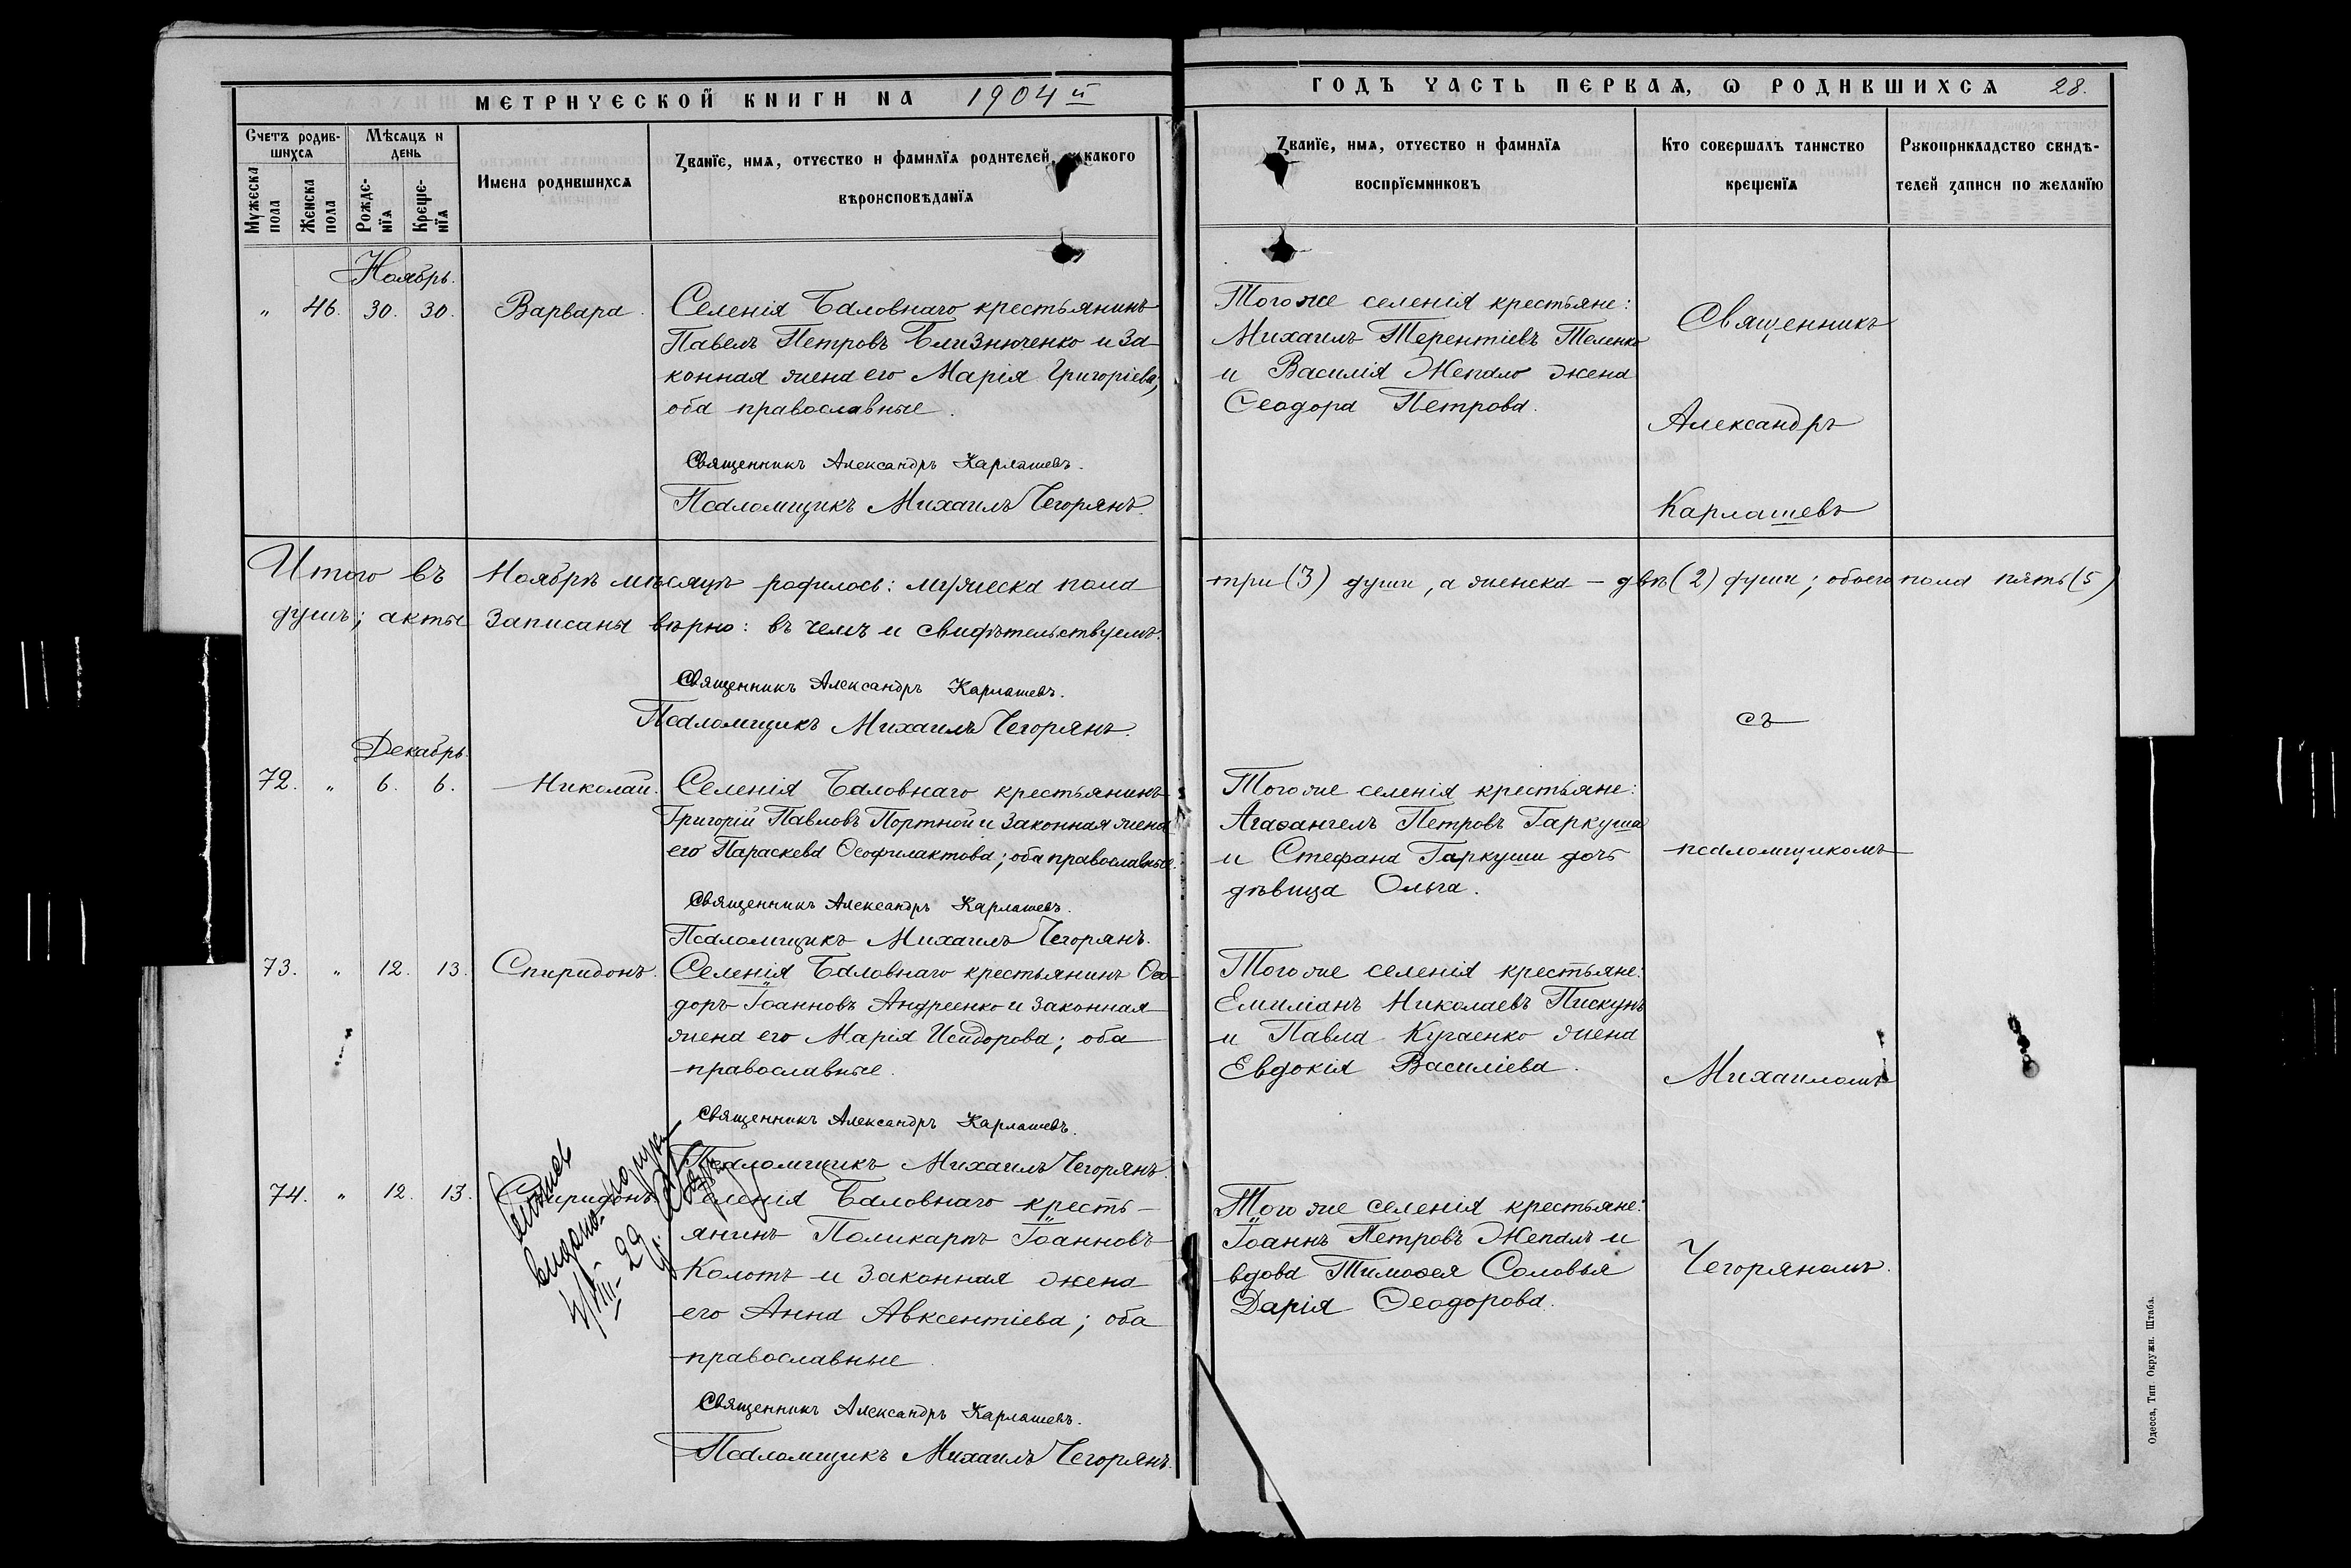 МЕТРИЧЕСКОЙ КНИГИ НА 1904 й
Счетъ родив-
шихся
Мѣсяцъ и
день
Мужеска
пола
Женска
пола
Рожде-
нїя
Креще-
нїя
Имена родившихся
Званїе, имя, отчество и фамилїя родителей, какого
вѣроисповѣданїя
Ноябрь.
" 46. 30. 30. Варвара. Селенія Баловнаго крестьянинъ
Павелъ Петровъ Близнюченко и за-
конная жена его Марія Григоріева;
оба православные.
Священникъ Александръ Карлашевъ.
Псаломщикъ Михаилъ Чегорянъ.
Итого въ Ноябрѣ мѣсяцѣ родилось: мужеска пола
душъ; акты записаны вѣрно: въ чемъ и свидѣтельствуемъ.
Священникъ Александръ Карлашевъ.
Псаломщикъ Михаилъ Чегорянъ.
Декабрь.
72. " 6. 6. Николай. Селенія Баловнаго крестьянинъ
Григорій Павловъ Портной и законная жена
его Параскева Ѳеофилактова; оба православные.
Священникъ Александръ Карлашевъ.
Псаломщикъ Михаилъ Чегорянъ.
73. " 12. 13. Спиридонъ. Селенія Баловнаго крестьянинъ Ѳео-
доръ Іоанновъ Андреенко и законная
жена его Марія Исидорова; оба
православные.
Священникъ Александръ Карлашевъ.
Псаломщикъ Михаилъ Чегорянъ.
74. " 12. 13. Спиридонъ. Селенія Баловнаго кресть-
янинъ Поликарпъ Іоанновъ
Колотъ и законная жена
его Анна Авксентіева; оба
православные.
Священникъ Александръ Карлашевъ.
Псаломщикъ Михаилъ Чегорянъ.
видано
VIII-29
ГОДЪ ЧАСТЬ ПЕРВАЯ, Ѡ РОДИВШИХСЯ 28.
Званїе, имя, отчество и фамилїя
воспрїемниковъ
Кто совершалъ таинство
крещенїя
Рукоприкладство свидѣ-
телей записи по желанїю
Того же селенія крестьяне:
Михаилъ Терентіевъ Теленко
и Василія Жепало жена
Ѳеодора Петрова.
три (3) души, а женска - двѣ (2) души; обоего пола пять (5)
Того же селенія крестьяне:
Агаѳангелъ Петровъ Гаркуша
и Стефана Гаркуши дочь
дѣвица Ольга.
Того же селенія крестьяне:
Емиліанъ Николаевъ Пискунъ
и Павла Кугаенко жена
Евдокія Василіева.
Того же селенія крестьяне:
Іоаннъ Петровъ Жепалъ и
вдова Тимоѳея Соловья
Дарія Ѳеодорова.
Священникъ
Александръ
Карлашевъ
съ
псаломщикомъ
Михаиломъ
Чегоряномъ.
Одесса, Тип. Окружн. Штаба.